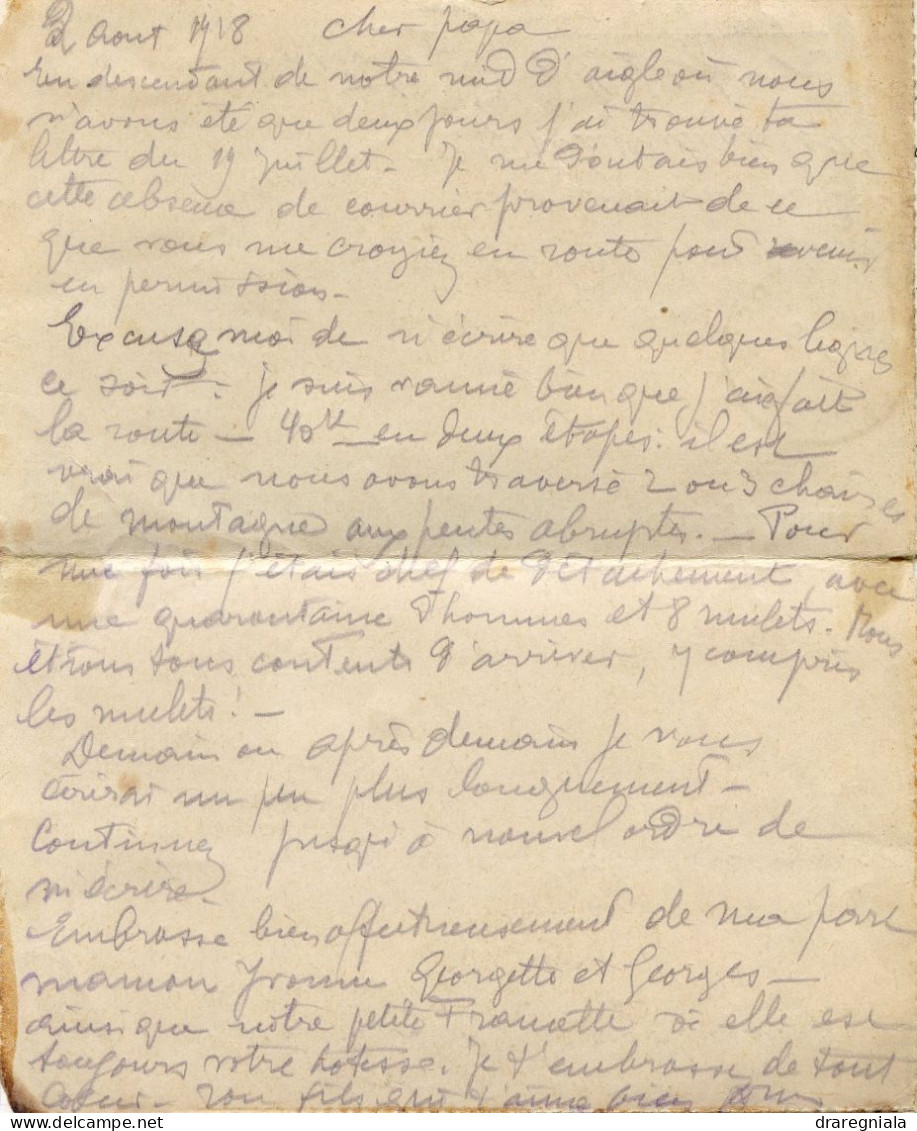 2 Aout 1918 cher papa
En descendant de notre nid d'aigle où nous
n'avons été que deux jours j'ai trouvé ta
lettre du 19 juillet. Je me doutais bien que
cette absence de courrier provenait de ce
que vous me croyiez en route pour venir
en permission.
Excusez moi de n'écrire que quelques lignes
ce soir. je suis vanné bien que j'ai fait
la route - 40k en deux étapes: il est
vrai que nous avons traversé 2 ou 3 chaines
de montagne aux pentes abruptes. - Pour
une fois j'étais chef de détachement, avec
une quarantaine d'hommes et 8 mulets. Nous
étions tous contents d'arriver, y compris
les mulets! -
Demain ou après demain je vous
écrirai un peu plus longuement -
Continuez jusqu'à nouvel ordre de
m'écrire.
Embrasse bien affectueusement de ma part
maman Yvonne Georgette et Georges -
ainsi que notre petite Francette si elle est
toujours votre hotesse. Je t'embrasse de tout
coeur - Ton fils qui t'aime bien
draregniala